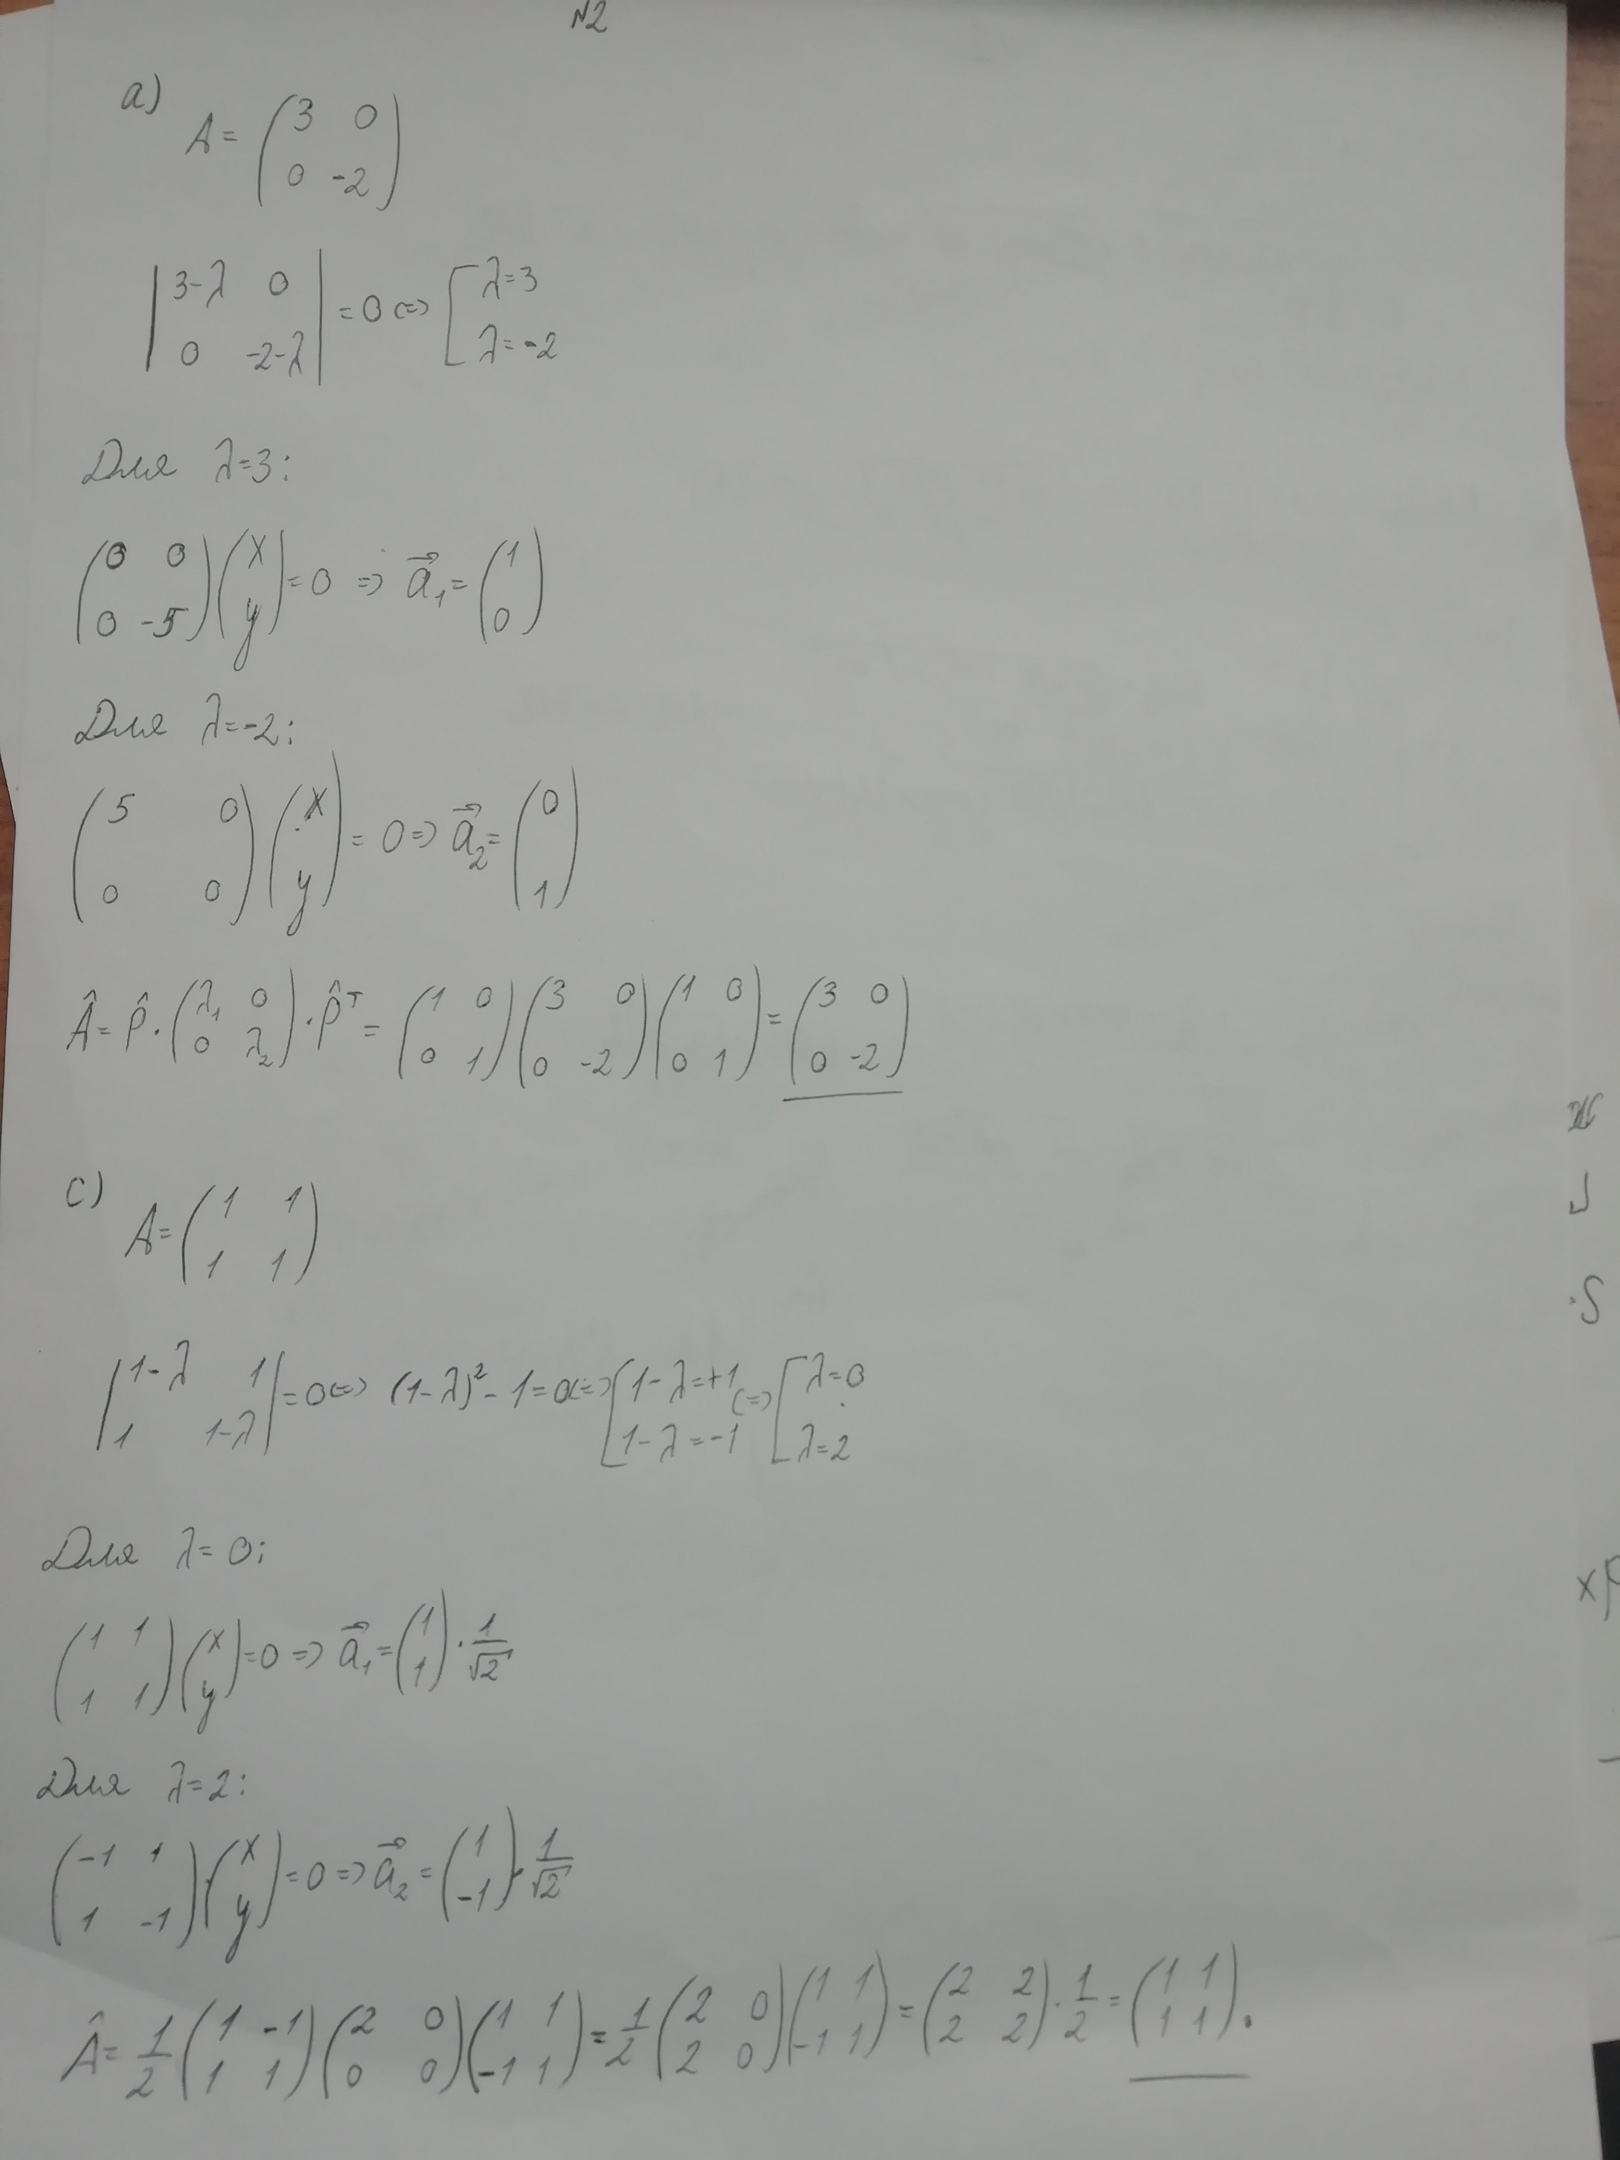 N2
a)
A = (3 0; 0 -2)
|3-λ 0; 0 -2-λ| = 0 <=> [λ=3; λ=-2
Для λ=3:
(0 0; 0 -5)(x; y) = 0 => a⃗₁ = (1; 0)
Для λ=-2:
(5 0; 0 0)(x; y) = 0 => a⃗₂ = (0; 1)
Â = P̂·(λ₁ 0; 0 λ₂)·P̂ᵀ = (1 0; 0 1)(3 0; 0 -2)(1 0; 0 1) = (3 0; 0 -2)
c)
A = (1 1; 1 1)
|1-λ 1; 1 1-λ| = 0 <=> (1-λ)² - 1 = 0 <=> [1-λ=+1; 1-λ=-1 <=> [λ=0; λ=2
Для λ=0:
(1 1; 1 1)(x; y) = 0 => a⃗₁ = (1; 1)·1/√2
Для λ=2:
(-1 1; 1 -1)(x; y) = 0 => a⃗₂ = (1; -1)·1/√2
Â = 1/2 (1 -1; 1 1)(2 0; 0 0)(1 1; -1 1) = 1/2 (2 0; 2 0)(1 1; -1 1) = (2 2; 2 2)·1/2 = (1 1; 1 1).